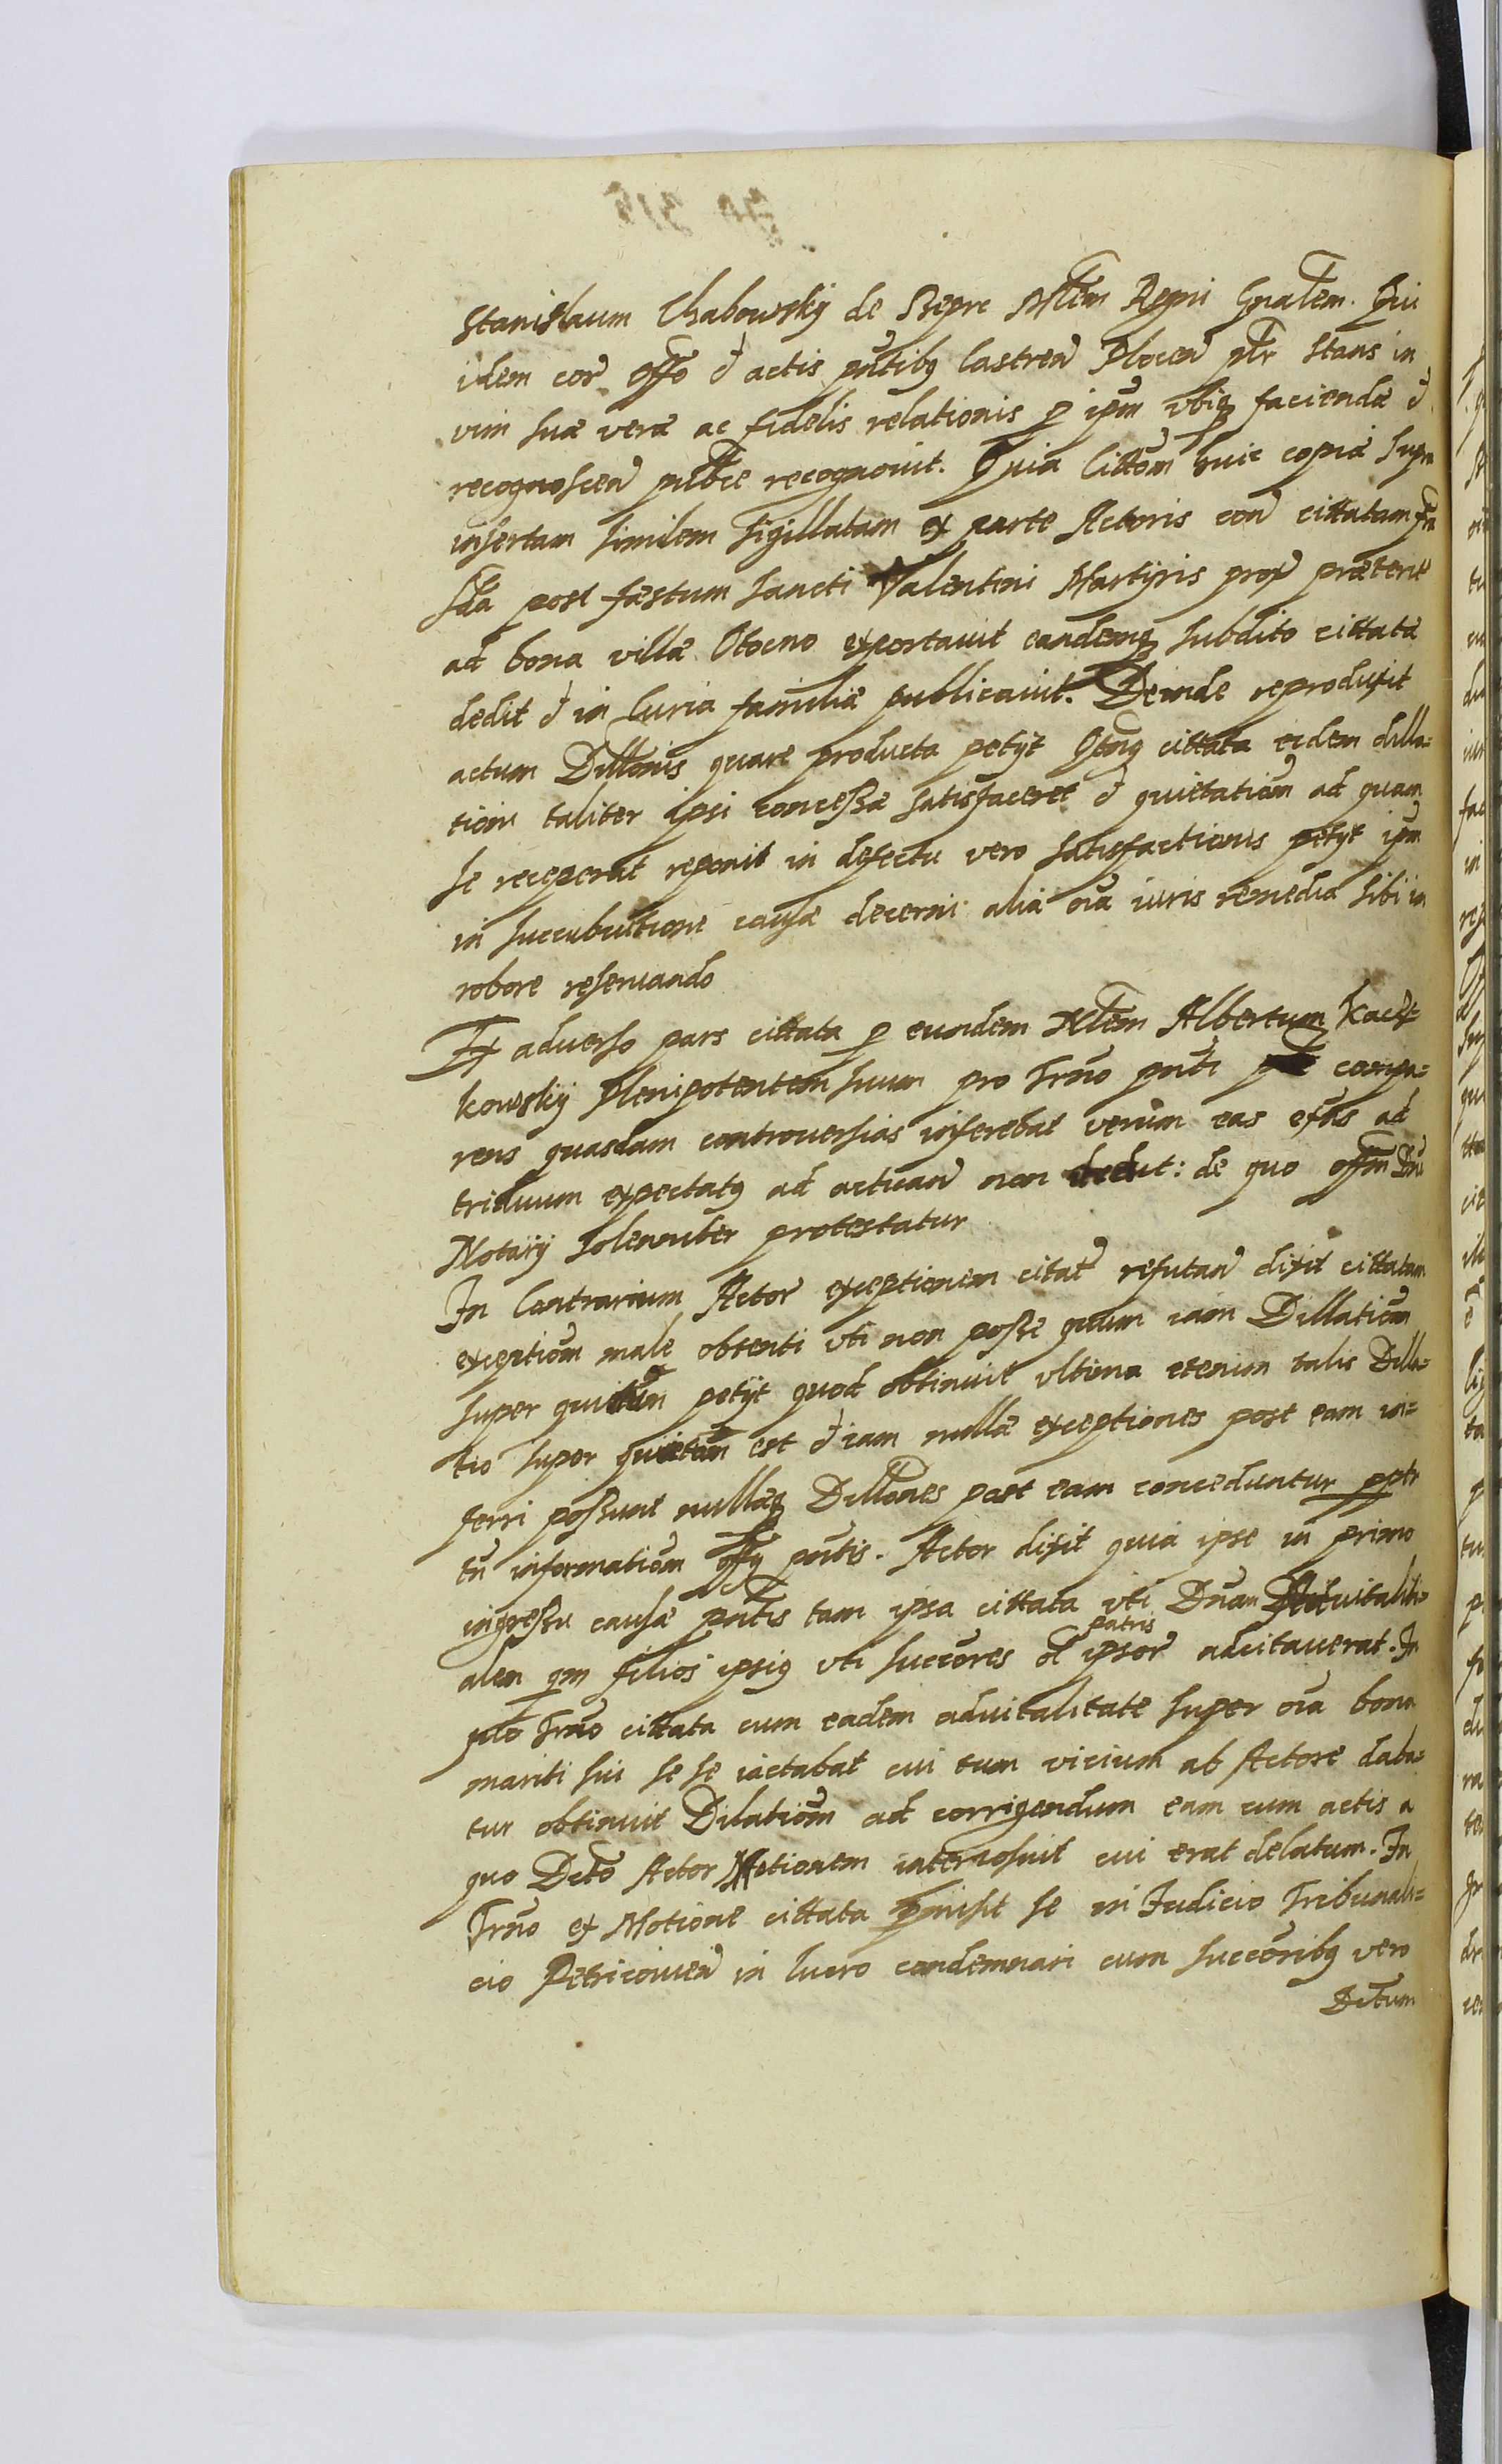 Stanislaum Chabowskÿ de Repre Mftem Regni Gnalem. Qui
idem cor Offo & actis pntibq Castren Plocen pter stans in
vim suæ veræ ac fidelis relationis p ipm vbiq faciendæ &
recognoscen publice recognouit. Quia Cittom huic copiæ supra
insertam similem sigillatam ex parte Actoris con cittatam Fria
Sda post fæstum Sancti Valentini Martÿris prox præterit
ad bona villæ Otocno exportauit eandemq subdito cittatæ
dedit & in Curia familiæ publicauit. Deinde reproduxit
actum Dillonis quare producta petÿt Qtnq cittata eidem dilla=
tioni taliter ipsi concessæ satisfaceret & quietatiom ad quam
se receperat reponit in defectu vero satisfactionis petÿt ipm
in succubuitione causæ decerni alia oia iuris remedia sibi in
robore reseruando
Ex aduerso pars cittata p eundem Nlem Albertum Kacz=
kowskÿ Plenipotentem suum pro Trno pnti compa=
rens quasdam controuersias inferebat verum eas exhs ad
triduum expectatq ad actuan non dedit: de quo offm Dni
Notarÿ solenniter protestatur
In Contrarium Actor exceptionem citat refutan dixit cittatam
exceptiom male obtenti vti non posse quum iam Dillatiom
super quitum petÿt quod obtinuit vltima etenim talis Dilla=
tio super quietom est & iam nullæ exceptiones post eam in=
ferri possunt nullæq Dillones post eam conceduntur pptr
tn informatiom offÿ pntis. Actor dixit quia ipse in primo
ingressu causæ pntis tam ipsa cittata vti Dnam Aduitalit=
alem qm filios ipsiq vti succores ol patris ipsor adcitauerat. In
quo Trno cittata cum eadem aduitalitate super oia bona
mariti sui se se iactabat cui tum vicium ab Actore daba=
tur obtinuit Dilatiom ad corrigendum eam cum actis a
quo Dcto Actor Motionem interposuit cui erat delatum. In
Trno ex Motione cittata pmisit se in Iudicio Tribunali=
cio Petricouien in lucro condemnari cum succoribq vero
Dctum